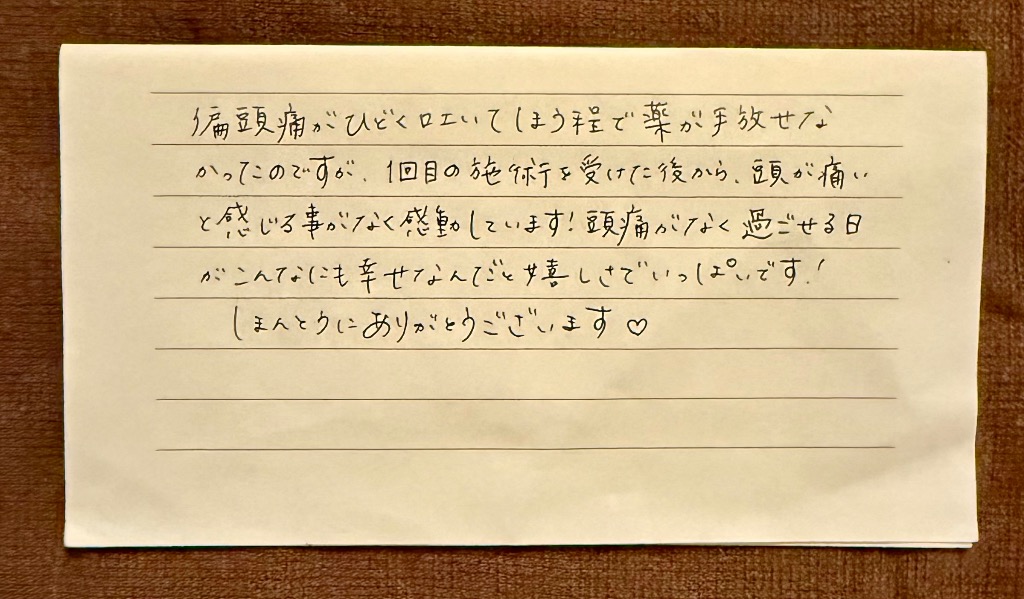 偏頭痛がひどく吐いてしまう程で薬が手放せな
かったのですが、1回目の施術を受けた後から、頭が痛い
と感じる事がなく感動しています!頭痛がなく過ごせる日
がこんなにも幸せなんだと嬉しさでいっぱいです!
ほんとうにありがとうございます♡